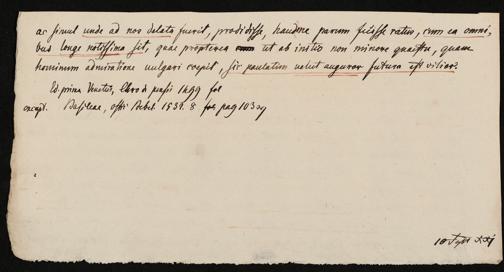 ac simul unde ad nos delata fuerit, prodidisse, haudne parum fuisse ratus, cum ea omni,
bus longe notissima sit, quae propterea ut ab initio non minore quaestu, quam
hominum admiratione vulgari coepit, sic paulatim velut auguror futura est vilior.
Ed. prima Venetiis, 1499 fol
Basileae, Bebel. 1532. 8 pag 103